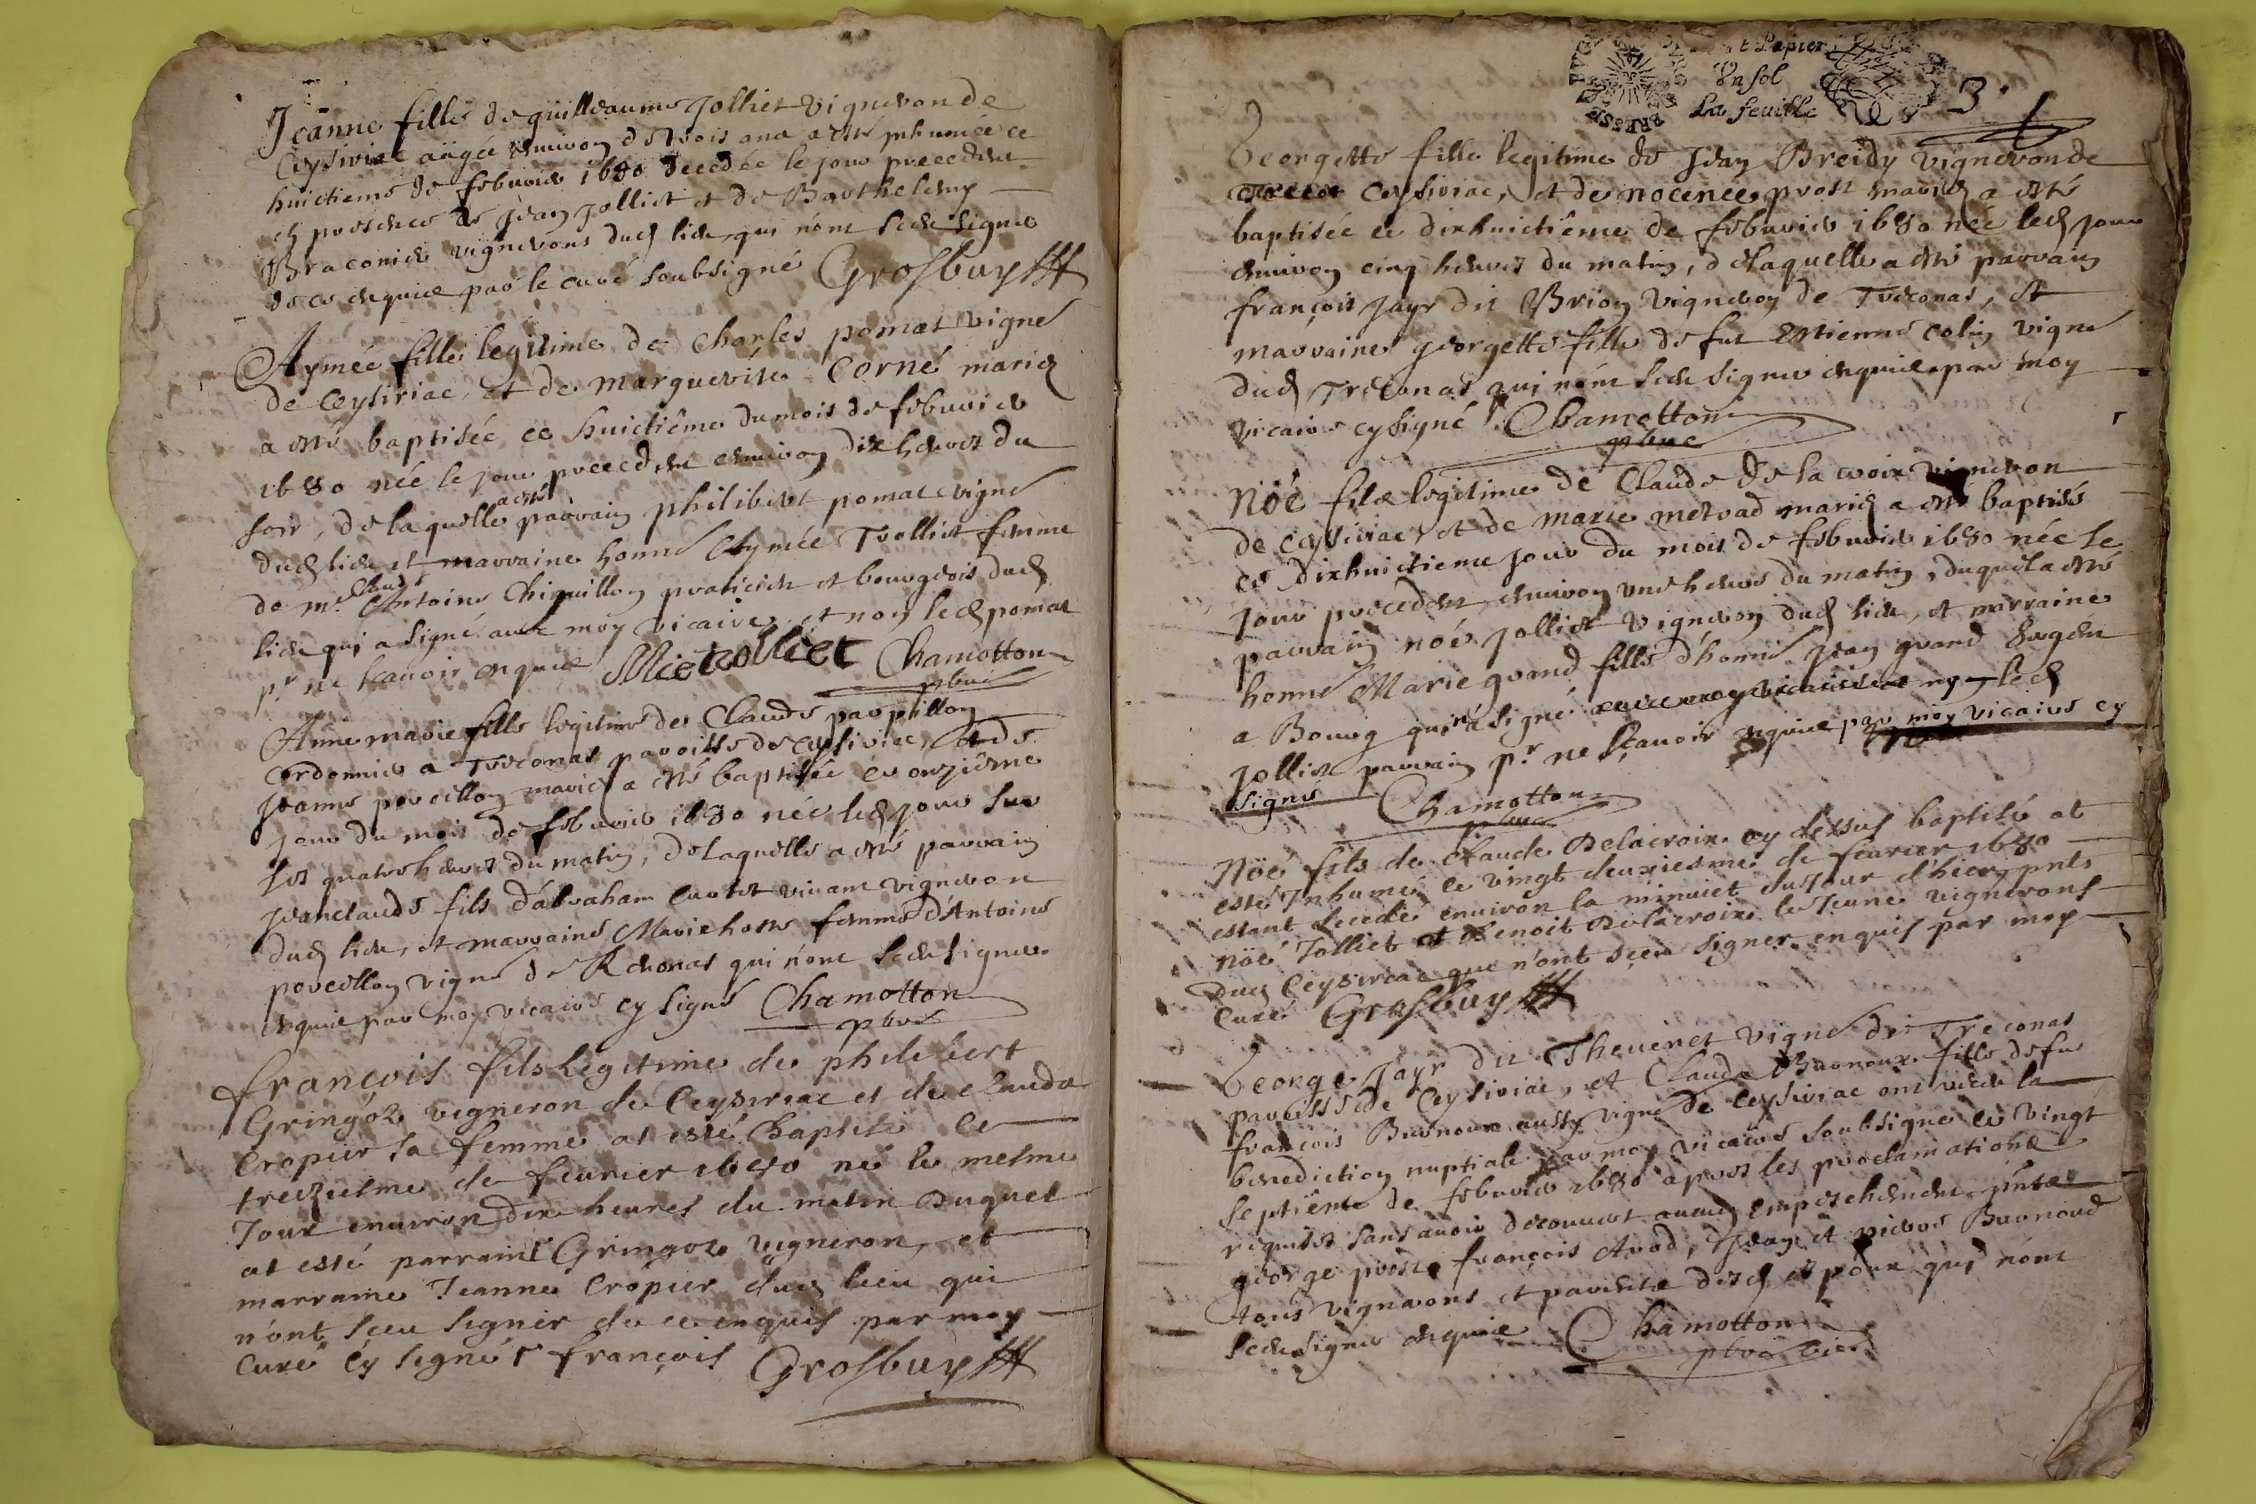 Jeanne fille de guilleaume Jolliet vigneron de
Ceysiriac aagée environ de trois ans a esté inhumée ce
huictieme de febvrier 1680 decedée le jour precedent
en presence de Jean Jolliet et de Barthelemy
Braconier vignerons dud lieu qui n'ont sceu signer
de ce enquis par le curé soubsigné Grosbuy
Aymée fille legitime de Charles pomat vigne
de Ceysiriac, et de marguerite Corné mariez
a esté baptisée ce huictiême du mois de febvrier
1680 née le jour precedent environ dix heures du
soir, de laquelle a esté parrain philibert pomat vigne
dud lieu et marraine honne Aymée Trolliet femme
de me Claude Antoine Chiquillon praticien et bourgeois dud
lieu qui a signé avec moy vicaire, et non led pomat
pr ne scavoir enquis Mie trolliet Chamotton
pbre
Anne marie fille legitime de Claude parpillon
cordonnier a Treconas paroisse de Ceysiriac, et de
Jeanne porcillon mariez a esté baptisée ce onziéme
jour du mois de febvrier 1680 née led jour sur
les quatre heures du matin, de laquelle a esté parrain
Jeanclaude fils d'abraham vivant vigneron
dud lieu, et marraine Marie femme d'Antoine
porcillon vigne de Rev
onas qui n'ont sceu signer
enquis par moy vicaire cy signé Chamotton
pbre
françois fils legitime de philibert
Gringoz vigneron de Ceysiriac et de Clauda
Cropier sa femme at esté baptisé ce
treiziesme de feurier 1680 né le mesme
Jour environ dix heures du matin Duquel
at esté parrain Gringoz vigneron, et
marraine Jeanne Cropier dud lieu qui
n'ont sceu signer de ce enquis par moy
Curé Cy signé françois Grosbuy
et Papier
Un sol
La feuille
3
Georgette fille legitime de Jean Breidy vigneron de
Ceysiriac, et de nocence prost mariez a esté
baptisée ce dixhuictiême de febvrier 1680 née led jour
environ cinq heures du matin, de laquelle a esté parrain
françois Jayr dit Brion vigneron de Treconas, et
marraine georgette fille de fut Estienne colin vigne
dud Treconas qui n'ont sceu signer enquis par moy
vicaire cy signé Chamotton
pbre
Nöé filz legitime de Claude de la croix vigneron
de Ceysiriac, et de marie metrad mariez a esté baptisé
ce dixhuictieme jour du mois de febvrier 1680 née le
jour precedent environ une heure du matin, duquel a esté
parrain noé Jolliet vigneron dud lieu, et marraine
honne Marie grand fille d'honne Jean grand Sergent
a Bourg qui n'a signé ny led
Jolliet parrain pr ne scavoir enquis par moy vicaire cy
signé Chamotton
pbre
Nöé fils de Claude Delacroix cy dessus baptisé at
esté Inhumé le vingt deuxiesme de feurier 1680
estant decedé environ la minuict du Jour d'hier, pnts
Nöé Jolliet et Benoit Delacroix le Jeune vignerons
Dud Ceysiriac que n'ont sceu signer enquis par moy
Curé Grosbuy
George Jayr dit Thevenet vigne de Treconas
parroisse de Ceysiriac, et Claude Buronoux fille de fu
françois Buronoux aussy vigne de Ceysiriac ont receu la
benediction nuptiale par moy vicaire soubsigné le vingt
septiême de febvrier 1680 apres les proclamations
requises sans avoir decouvert aucun empeschement pntz
george prost, françois Avod, Jean et pierre Buronoud
tous vignerons et parents desd espoux qui n'ont
sceu signer enquis Chamotton
pbre vic